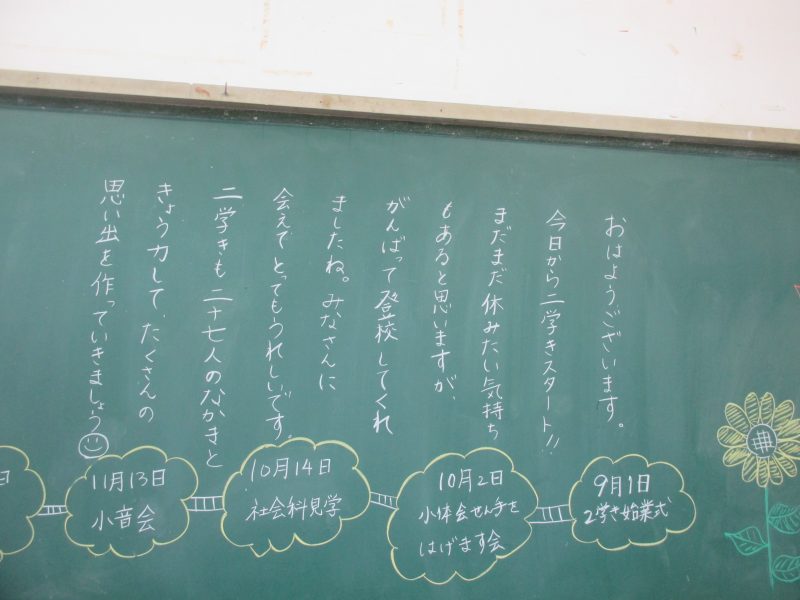 おはようございます。
今日から二学きスタート!!
まだまだ休みたい気持ち
もあると思いますが、
がんばって登校してくれ
ましたね。みなさんに
会えてとってもうれしいです。
二学きも二十七人のなかまと
きょう力して、たくさんの
思い出を作っていきましょう
9月1日
2学き始業式
10月2日
小体会せん手を
はげます会
10月14日
社会科見学
11月13日
小音会
日